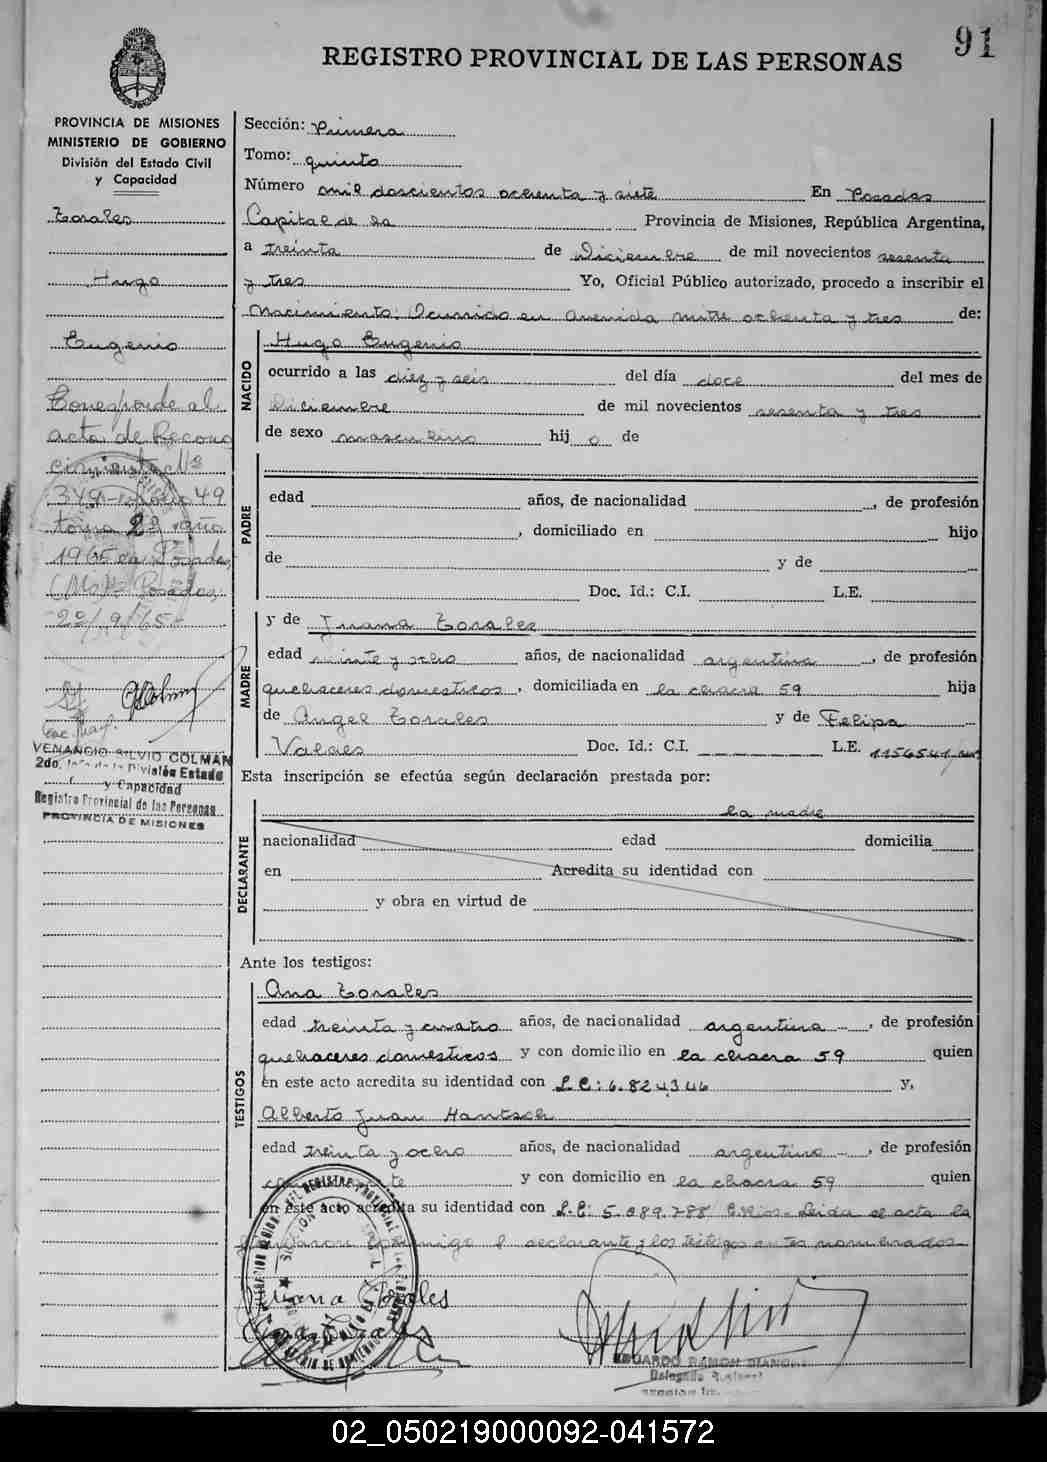 91
REGISTRO PROVINCIAL DE LAS PERSONAS
PROVINCIA DE MISIONES
MINISTERIO DE GOBIERNO
División del Estado Civil
y Capacidad
Torales
Hugo
Eugenio
Corresponde al
acta de Recono
cimiento Nº
349 - folio 49
tomo 2º año
1965 de Posadas
Posadas,
22/9/65
VENANCIO SILVIO COLMAN
2do. Jefe de la División Estado
y Capacidad
Registro Provincial de las Personas
PROVINCIA DE MISIONES
Sección: Primera
Tomo: quinto
Número mil doscientos ochenta y siete En Posadas
Capital de la Provincia de Misiones, República Argentina,
a treinta de Diciembre de mil novecientos sesenta
y tres Yo, Oficial Público autorizado, procedo a inscribir el
Nacimiento: Ocurrido en Avenida Mitre ochenta y tres de:
NACIDO
Hugo Eugenio
ocurrido a las diez y seis del día doce del mes de
Diciembre de mil novecientos sesenta y tres
de sexo masculino hij o de
PADRE
edad años, de nacionalidad , de profesión
, domiciliado en hijo
de y de
Doc. Id.: C.I. L.E.
MADRE
y de Juana Torales
edad veinte y ocho años, de nacionalidad argentina , de profesión
quehaceres domesticos , domiciliada en la chacra 59 hija
de Angel Torales y de Felipa
Valdes Doc. Id.: C.I. L.E. 1156541
Esta inscripción se efectúa según declaración prestada por:
DECLARANTE
la madre
nacionalidad edad domicilia
en Acredita su identidad con
y obra en virtud de
Ante los testigos:
TESTIGOS
Ana Torales
edad treinta y cuatro años, de nacionalidad argentina , de profesión
quehaceres domesticos y con domicilio en la chacra 59 quien
en este acto acredita su identidad con L.C: 6.824346 y,
Alberto Juan Hantsch
edad treinta y ocho años, de nacionalidad argentino , de profesión
y con domicilio en la chacra 59 quien
en este acto acredita su identidad con L.E: 5.089.788 Leida el acta la
firmaron conmigo el declarante y los testigos antes nombrados
Juana Torales
Ana Torales
EDUARDO RAMON
02_050219000092-041572